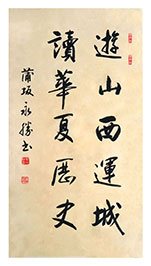 遊山西運城
讀華夏歷史
蒲坂永勝书